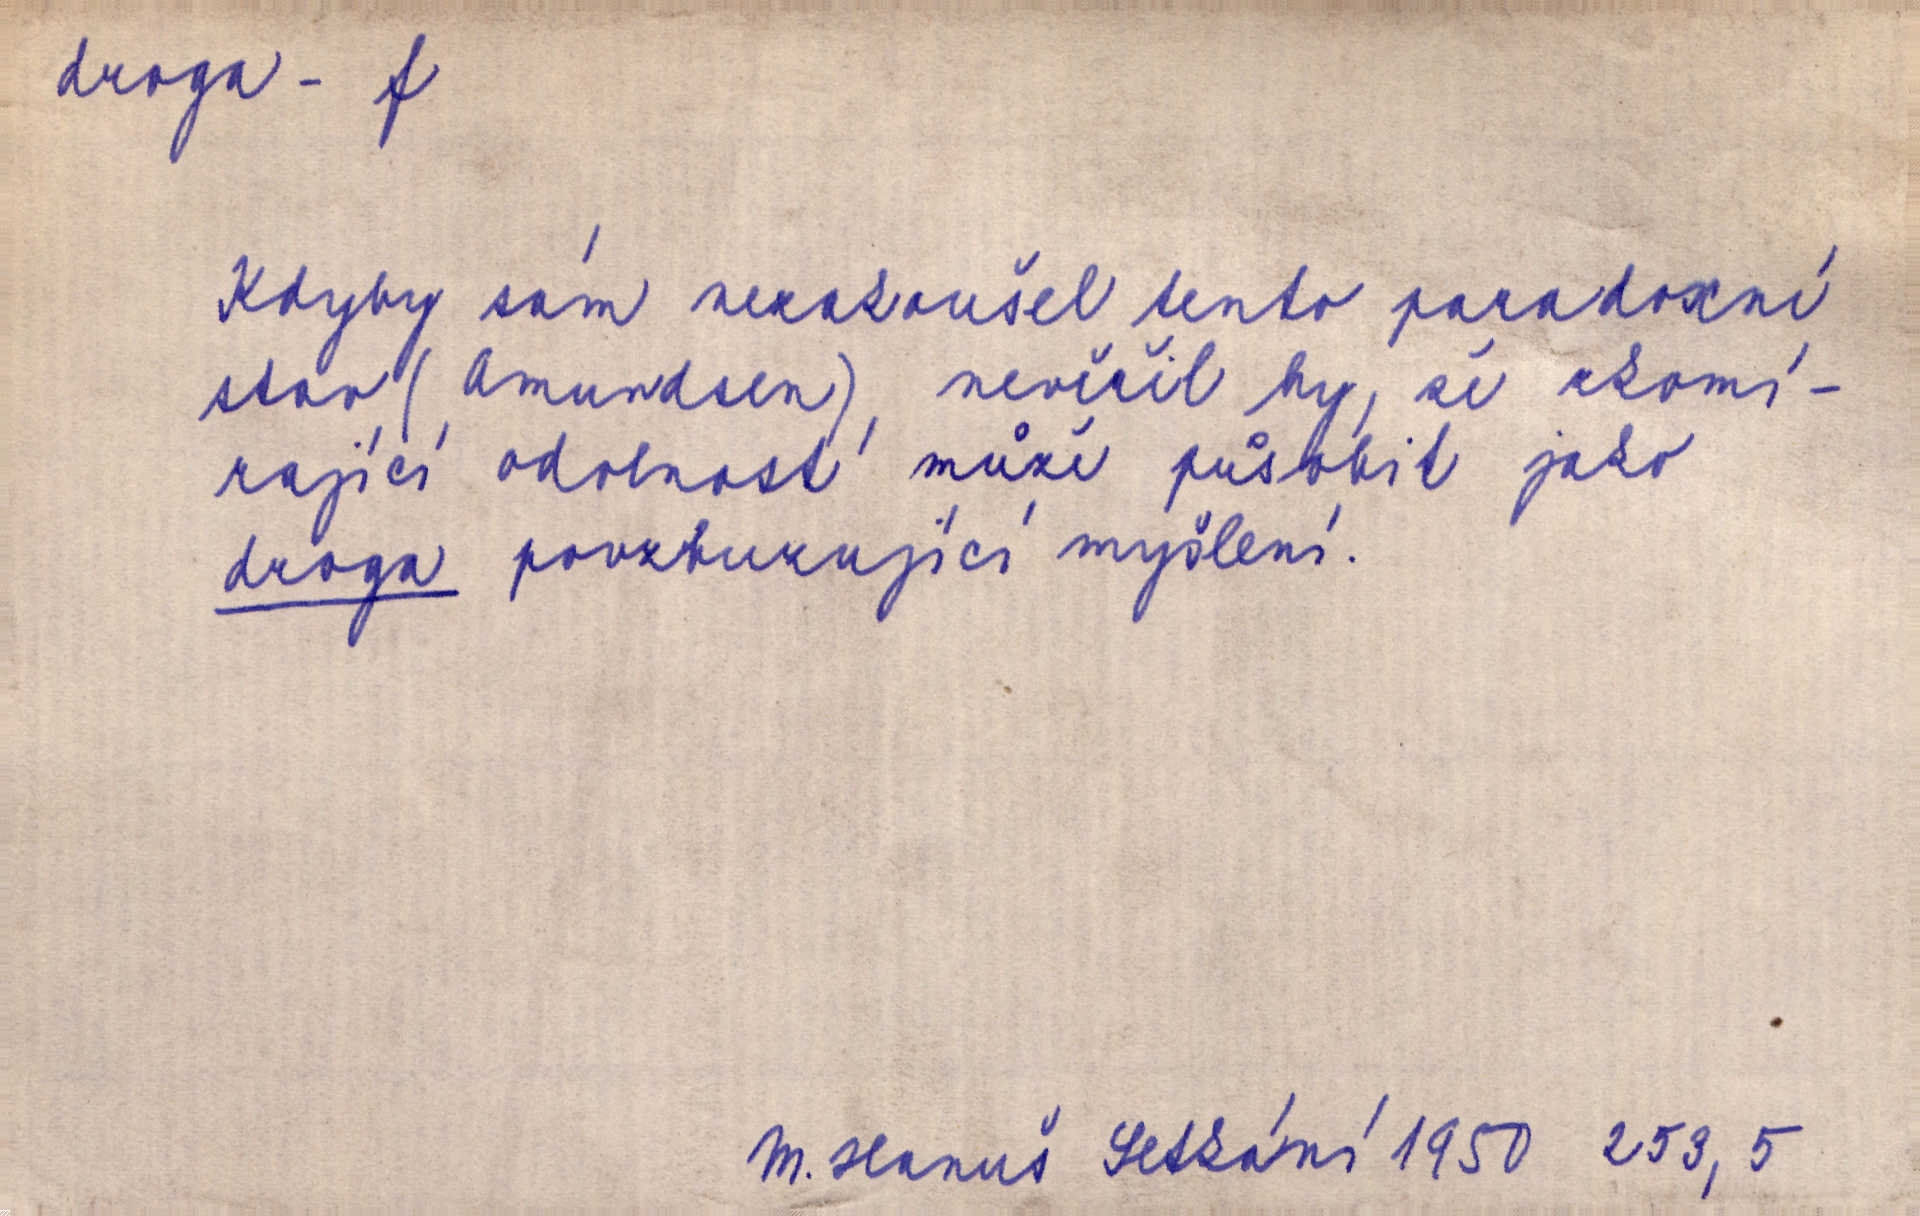 droga - f
Kdyby sám nezakoušel tento paradoxní
stav (Amundsen), nevěřil by, že zkomí-
rající odolnost může působit jako
droga povzbuzující myšlení.
M. Hanuš Setkání 1950 253, 5